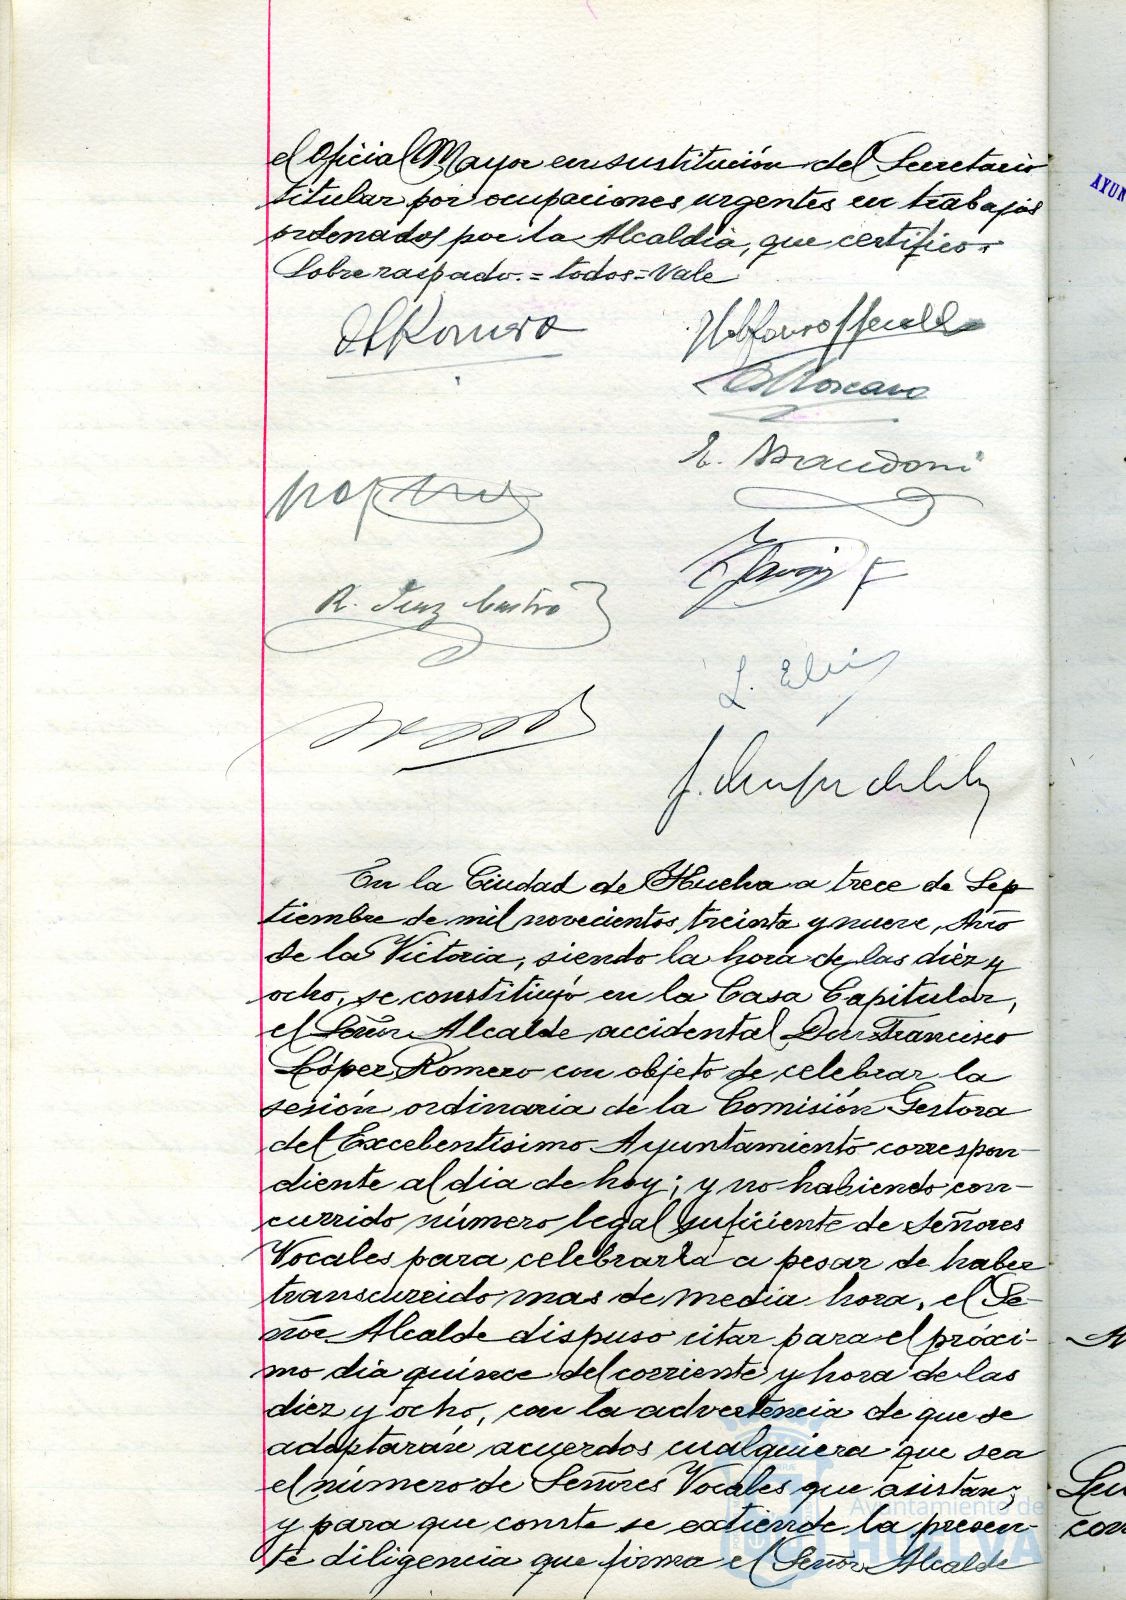 el Oficial Mayor en sustitución del Secretario
titular por ocupaciones urgentes en trabajos
ordenados por la Alcaldía, que certifico.
Sobre raspado.=todos=Vale
R. Diaz Castro
En la Ciudad de Huelva a trece de Sep
tiembre de mil novecientos treinta y nueve, Año
de la Victoria, siendo la hora de las diez y
ocho, se constituyó en la Casa Capitular,
el Señor Alcalde accidental Don Francisco
López Romero con objeto de celebrar la
sesión ordinaria de la Comisión Gestora
del Excelentísimo Ayuntamiento correspon-
diente al día de hoy; y no habiendo con-
currido número legal suficiente de Señores
Vocales para celebrarla a pesar de haber
transcurrido mas de media hora, el Se-
ñor Alcalde dispuso citar para el próxi-
mo día quince del corriente y hora de las
diez y ocho, con la advertencia de que se
adoptarán acuerdos cualquiera que sea
el número de Señores Vocales que asistan;
y para que conste se extiende la presen-
te diligencia que firma el Señor Alcalde
Ayuntamiento de
HUELVA
AYUN